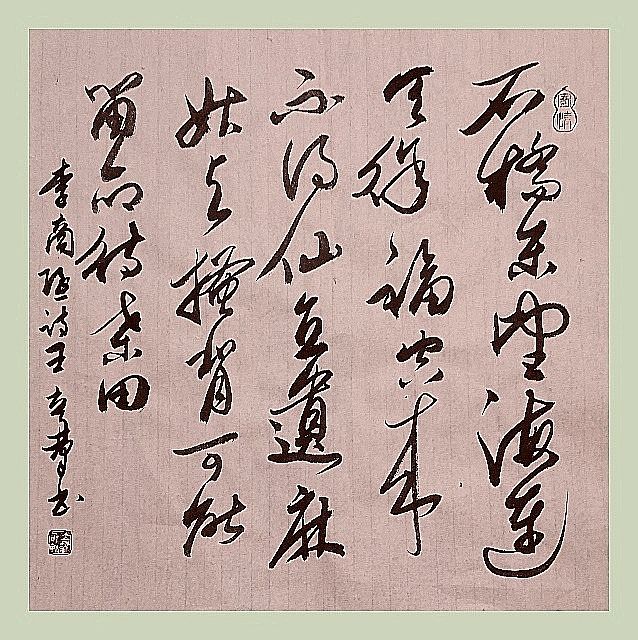 石橋东望海連
天徐福空来
不得仙直遣麻
姑与搔背可能
留命待桑田
李商隐诗王书